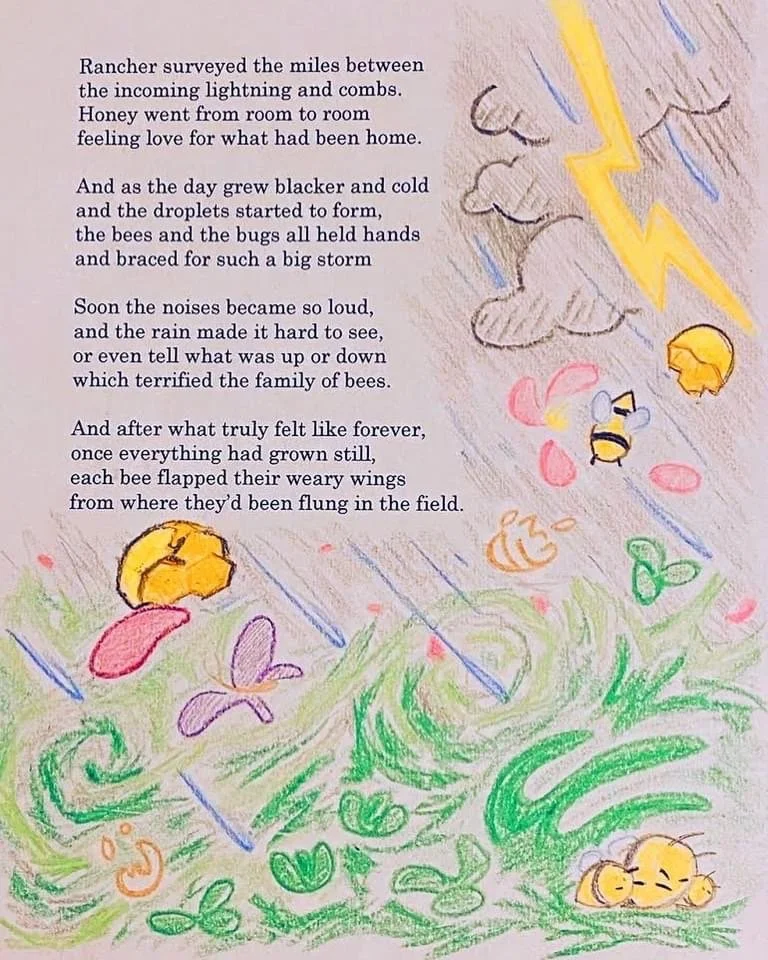 Rancher surveyed the miles between
the incoming lightning and combs.
Honey went from room to room
feeling love for what had been home.
And as the day grew blacker and cold
and the droplets started to form,
the bees and the bugs all held hands
and braced for such a big storm
Soon the noises became so loud,
and the rain made it hard to see,
or even tell what was up or down
which terrified the family of bees.
And after what truly felt like forever,
once everything had grown still,
each bee flapped their weary wings
from where they’d been flung in the field.